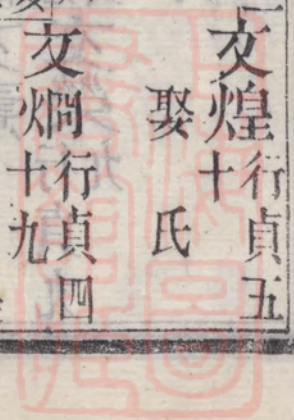 文煌行貞五十
娶氏
文烱行貞四十九